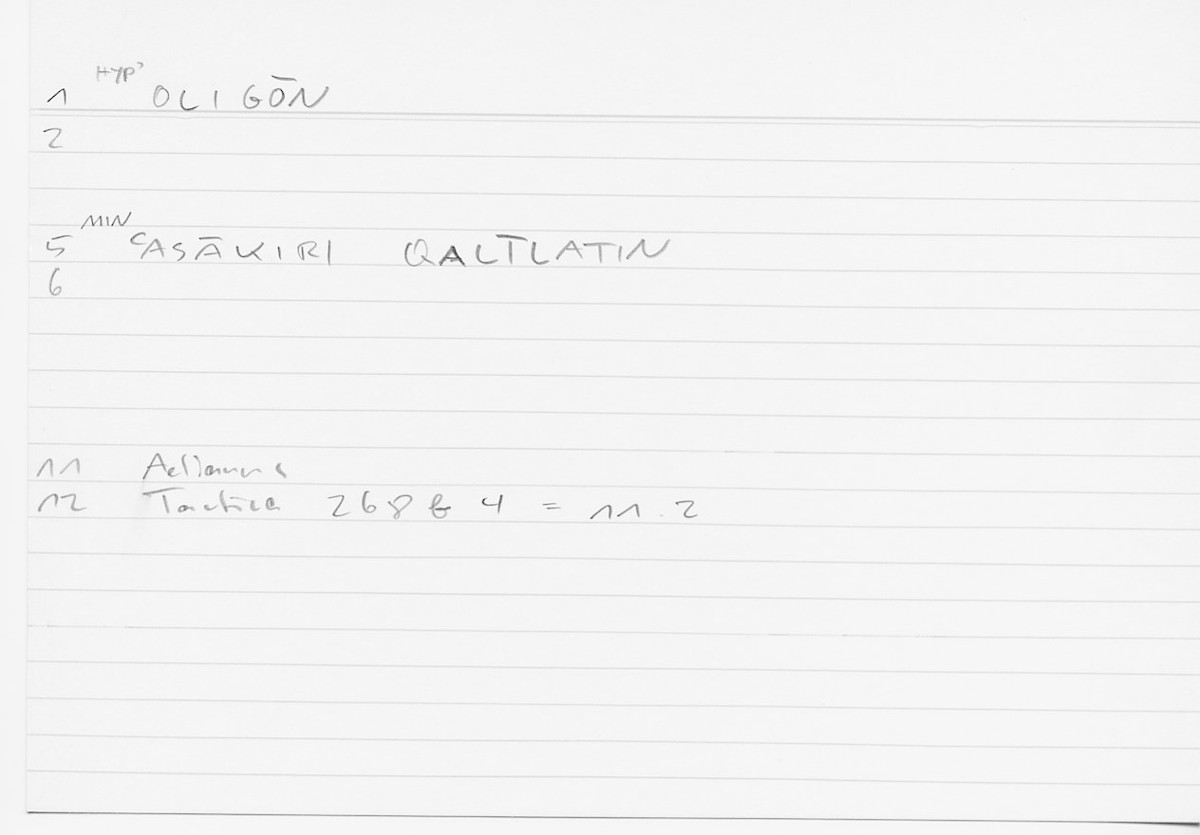 1 HYP' OLIGŌN
2
5 MIN ʿASĀKIRI QALĪLATIN
6
11 Aelianus
12 Tactica 268 b 4 = 11.2